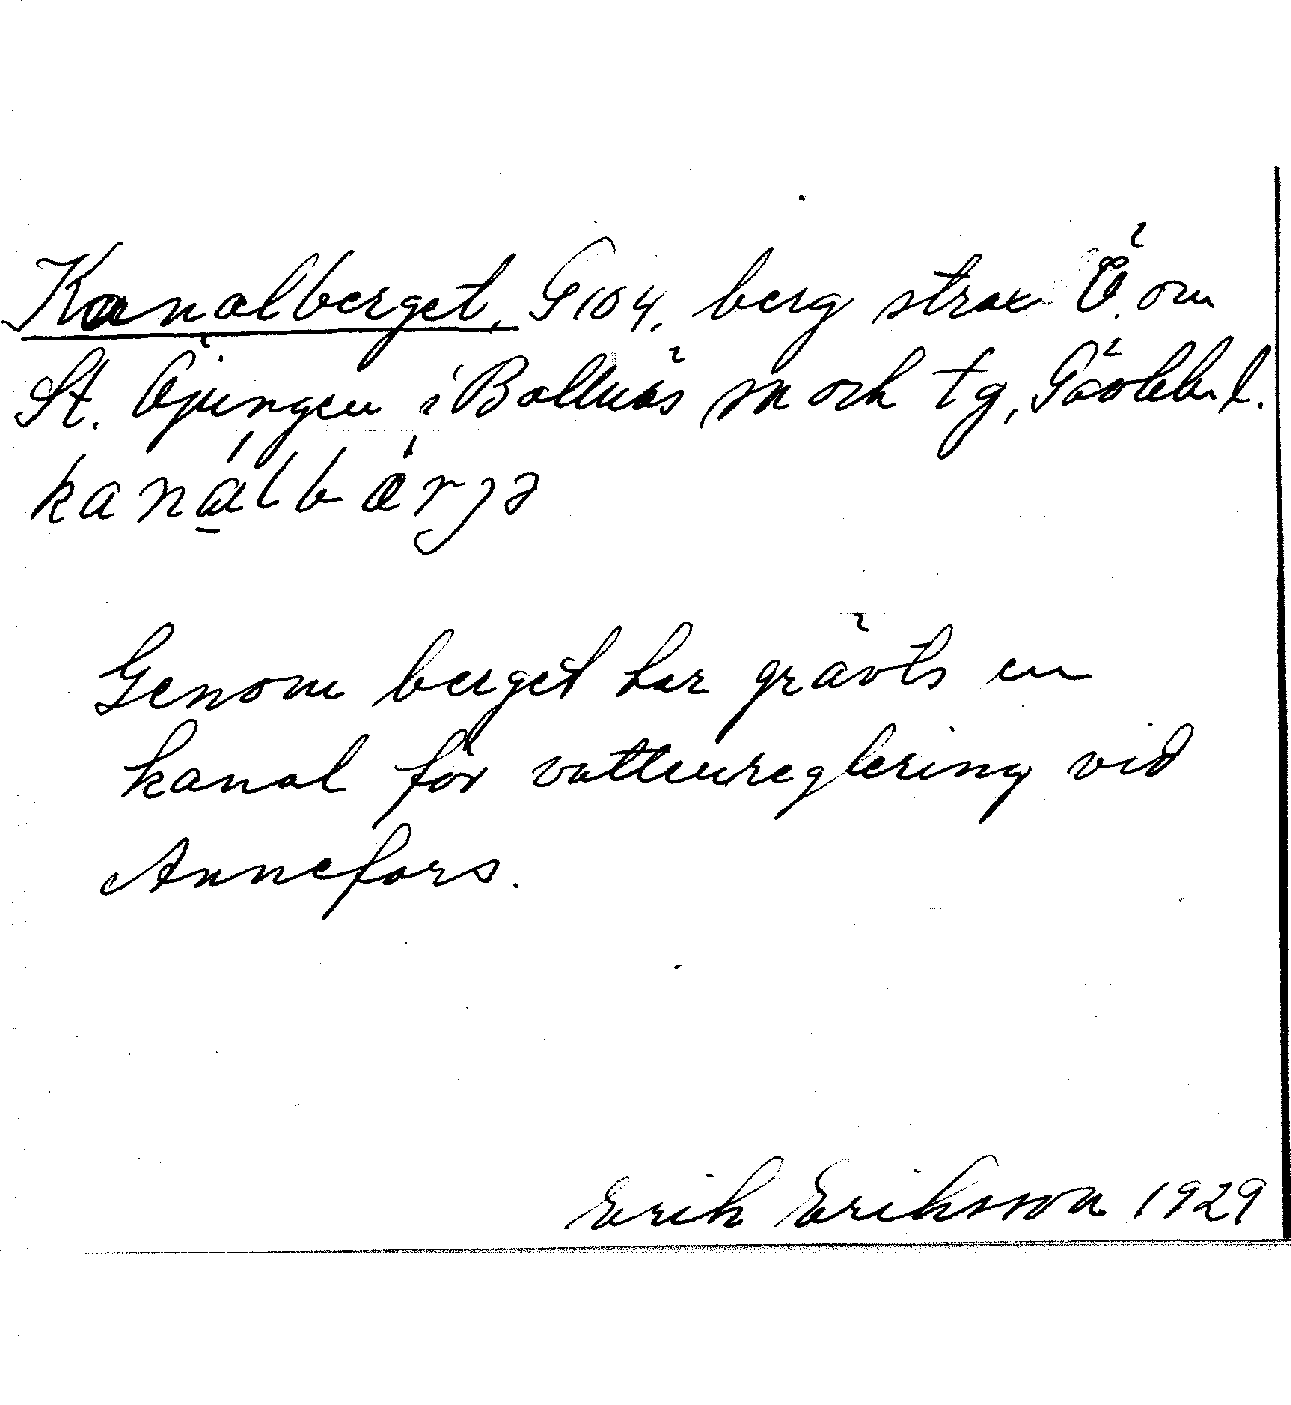 Kanalberget, G 104, berg strax Ö. om
St. Öjungen i Bollnäs sn och tg, Gävleb. l.
kanálbǽrjə
Genom berget har grävts en
kanal för vattenreglering vid
Annefors.
Erik Eriksson 1929